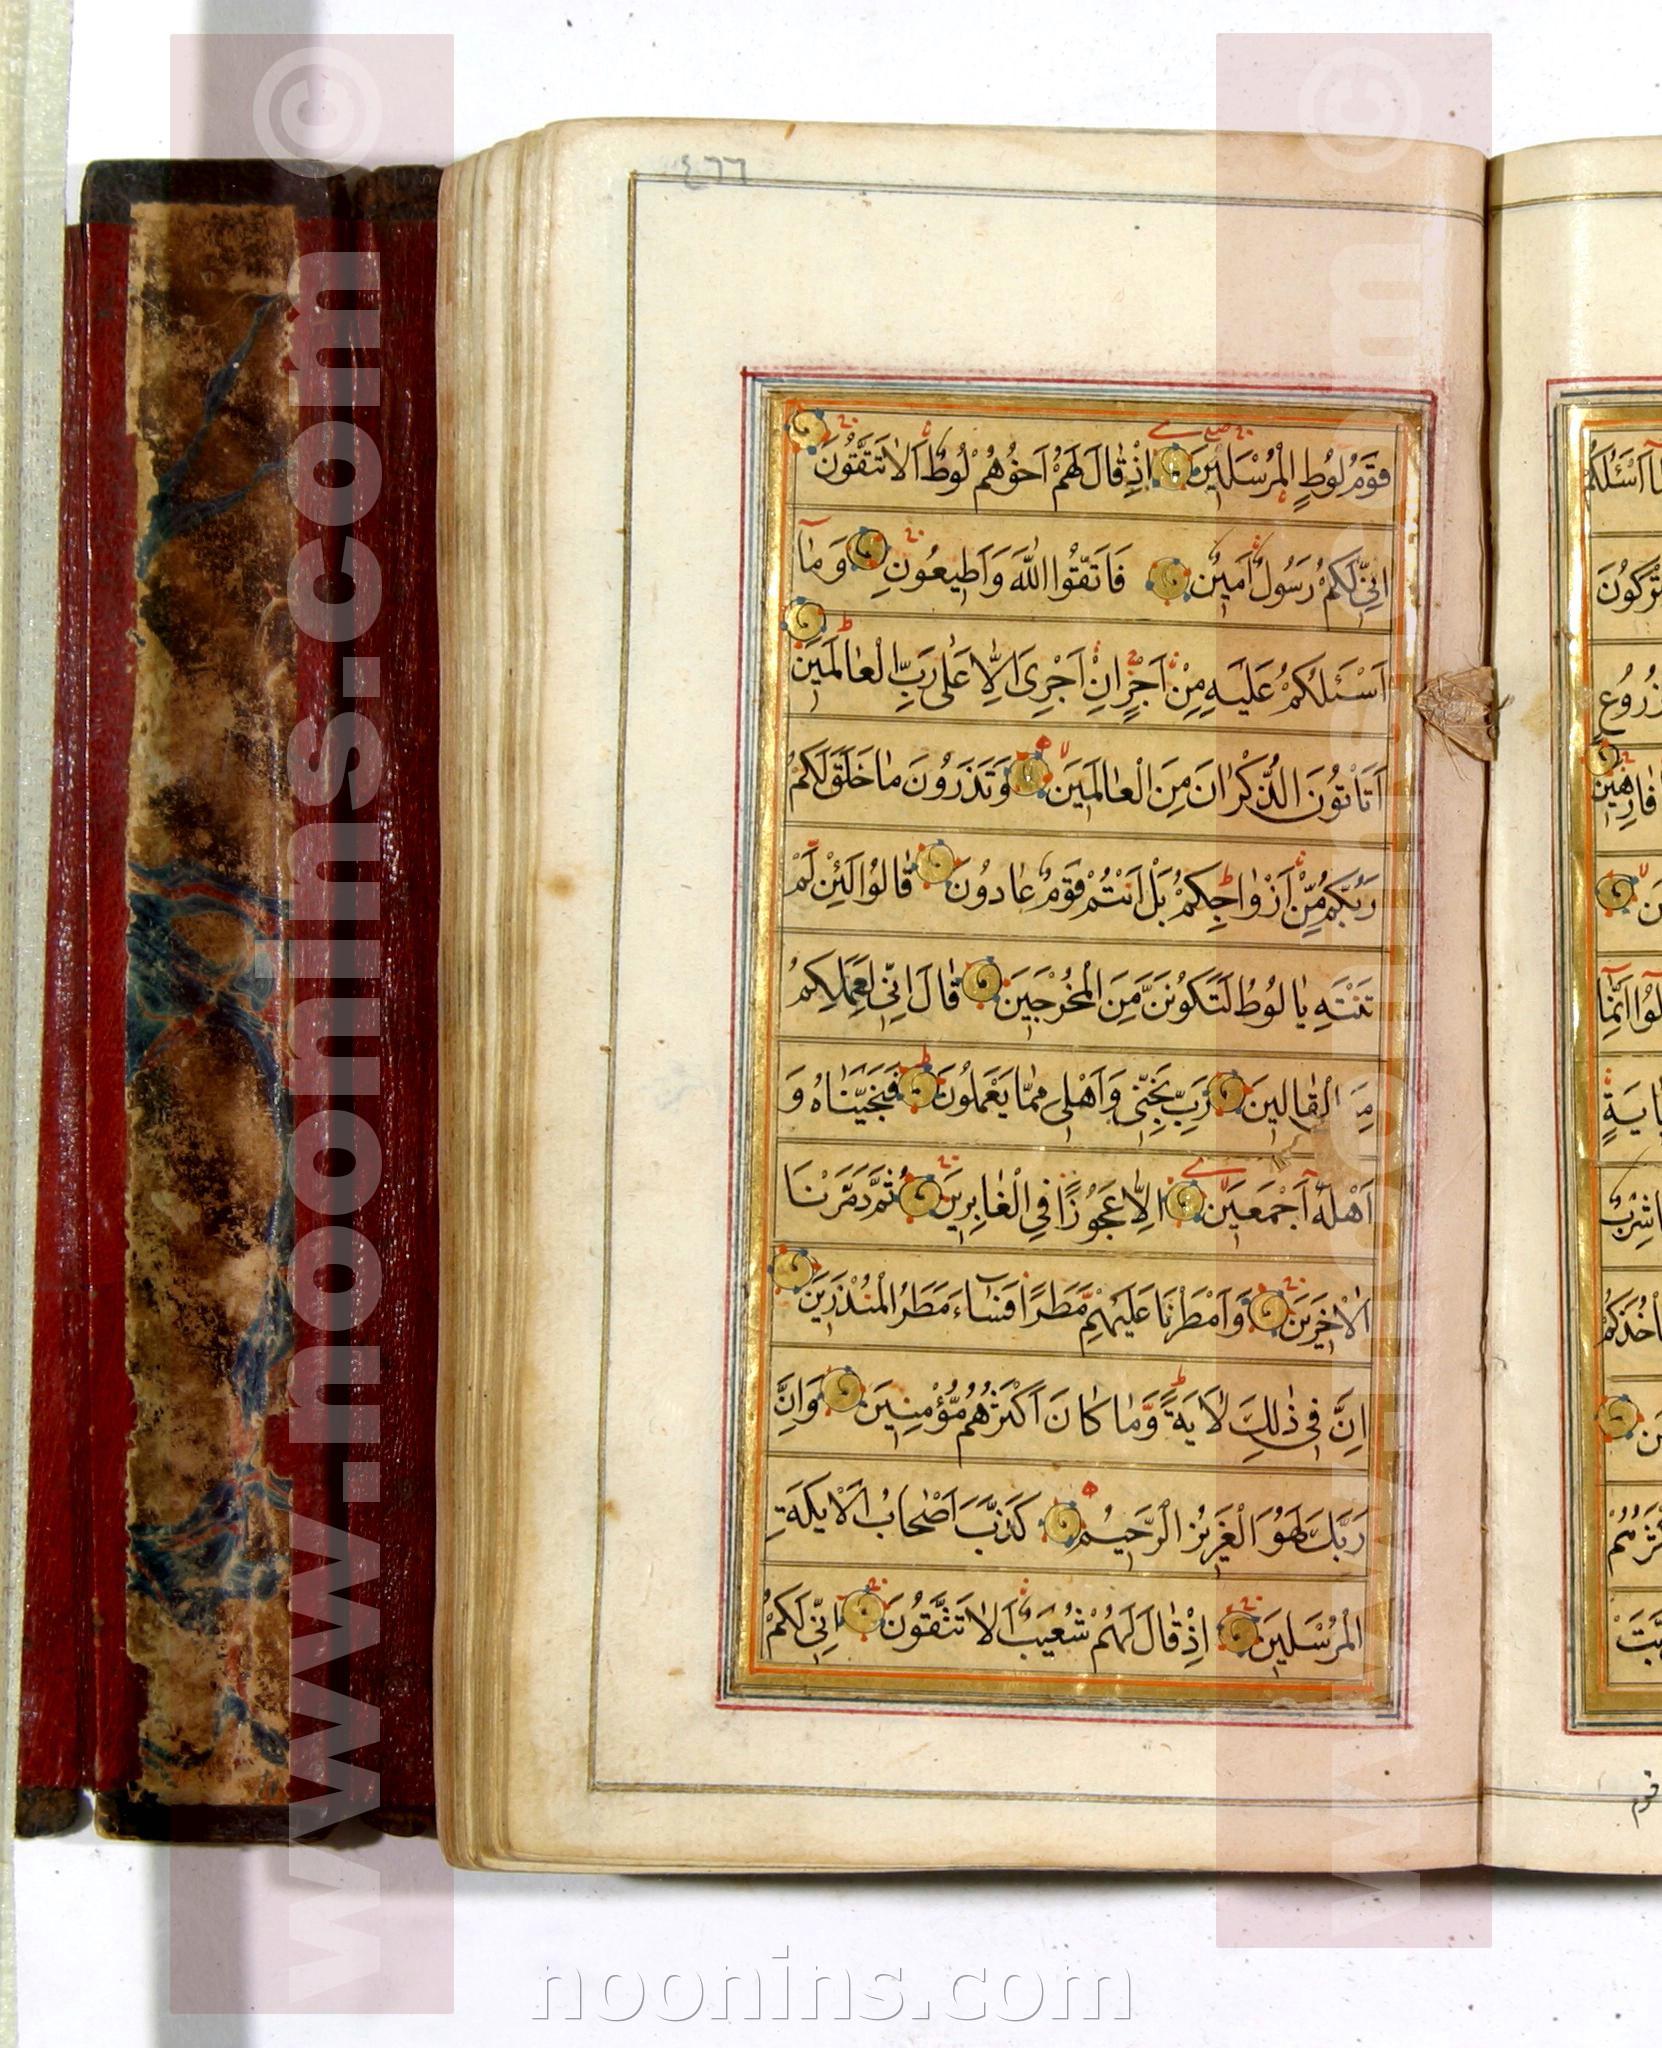 ٤٦٦
قَوْمُ لُوطٍ الْمُرْسَلِينَ اِذْ قَالَ لَهُمْ اَخُوهُمْ لُوطٌ اَلَا تَتَّقُونَ
اِنِّي لَكُمْ رَسُولٌ اَمِينٌ فَاتَّقُوا اللّٰهَ وَاَطِيعُونِ وَمَا
اَسْـَٔلُكُمْ عَلَيْهِ مِنْ اَجْرٍ اِنْ اَجْرِىَ اِلَّا عَلٰى رَبِّ الْعَالَمِينَ
اَتَاْتُونَ الذُّكْرَانَ مِنَ الْعَالَمِينَ وَتَذَرُونَ مَا خَلَقَ لَكُمْ
رَبُّكُمْ مِنْ اَزْوَاجِكُمْ بَلْ اَنْتُمْ قَوْمٌ عَادُونَ قَالُوا لَئِنْ لَمْ
تَنْتَهِ يَا لُوطُ لَتَكُونَنَّ مِنَ الْمُخْرَجِينَ قَالَ اِنِّي لِعَمَلِكُمْ
مِنَ الْقَالِينَ رَبِّ نَجِّنِي وَاَهْلِى مِمَّا يَعْمَلُونَ فَنَجَّيْنَاهُ وَ
اَهْلَهُ اَجْمَعِينَ اِلَّا عَجُوزًا فِي الْغَابِرِينَ ثُمَّ دَمَّرْنَا
الْاٰخَرِينَ وَاَمْطَرْنَا عَلَيْهِمْ مَطَرًا فَسَاءَ مَطَرُ الْمُنْذَرِينَ
اِنَّ فِي ذٰلِكَ لَاٰيَةً وَمَا كَانَ اَكْثَرُهُمْ مُؤْمِنِينَ وَاِنَّ
رَبَّكَ لَهُوَ الْعَزِيزُ الرَّحِيمُ كَذَّبَ اَصْحَابُ الْاَيْكَةِ
الْمُرْسَلِينَ اِذْ قَالَ لَهُمْ شُعَيْبٌ اَلَا تَتَّقُونَ اِنِّي لَكُمْ
www.noonins.com ©
www.noonins.com ©
noonins.com